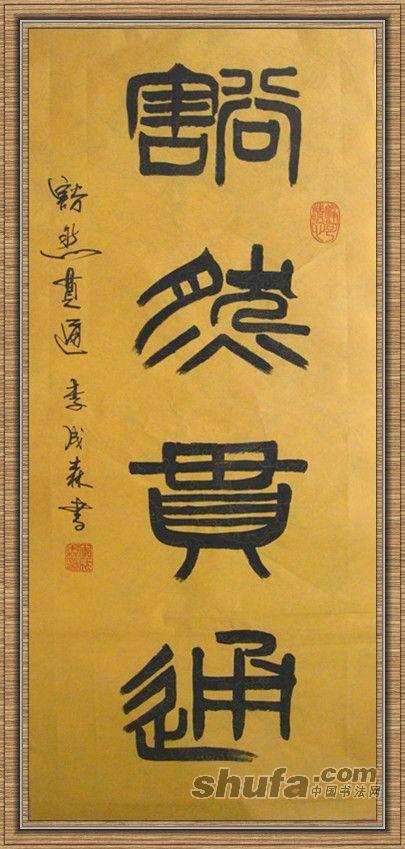 豁然貫通
豁然貫通 李成森書
shufa.com
中国书法网